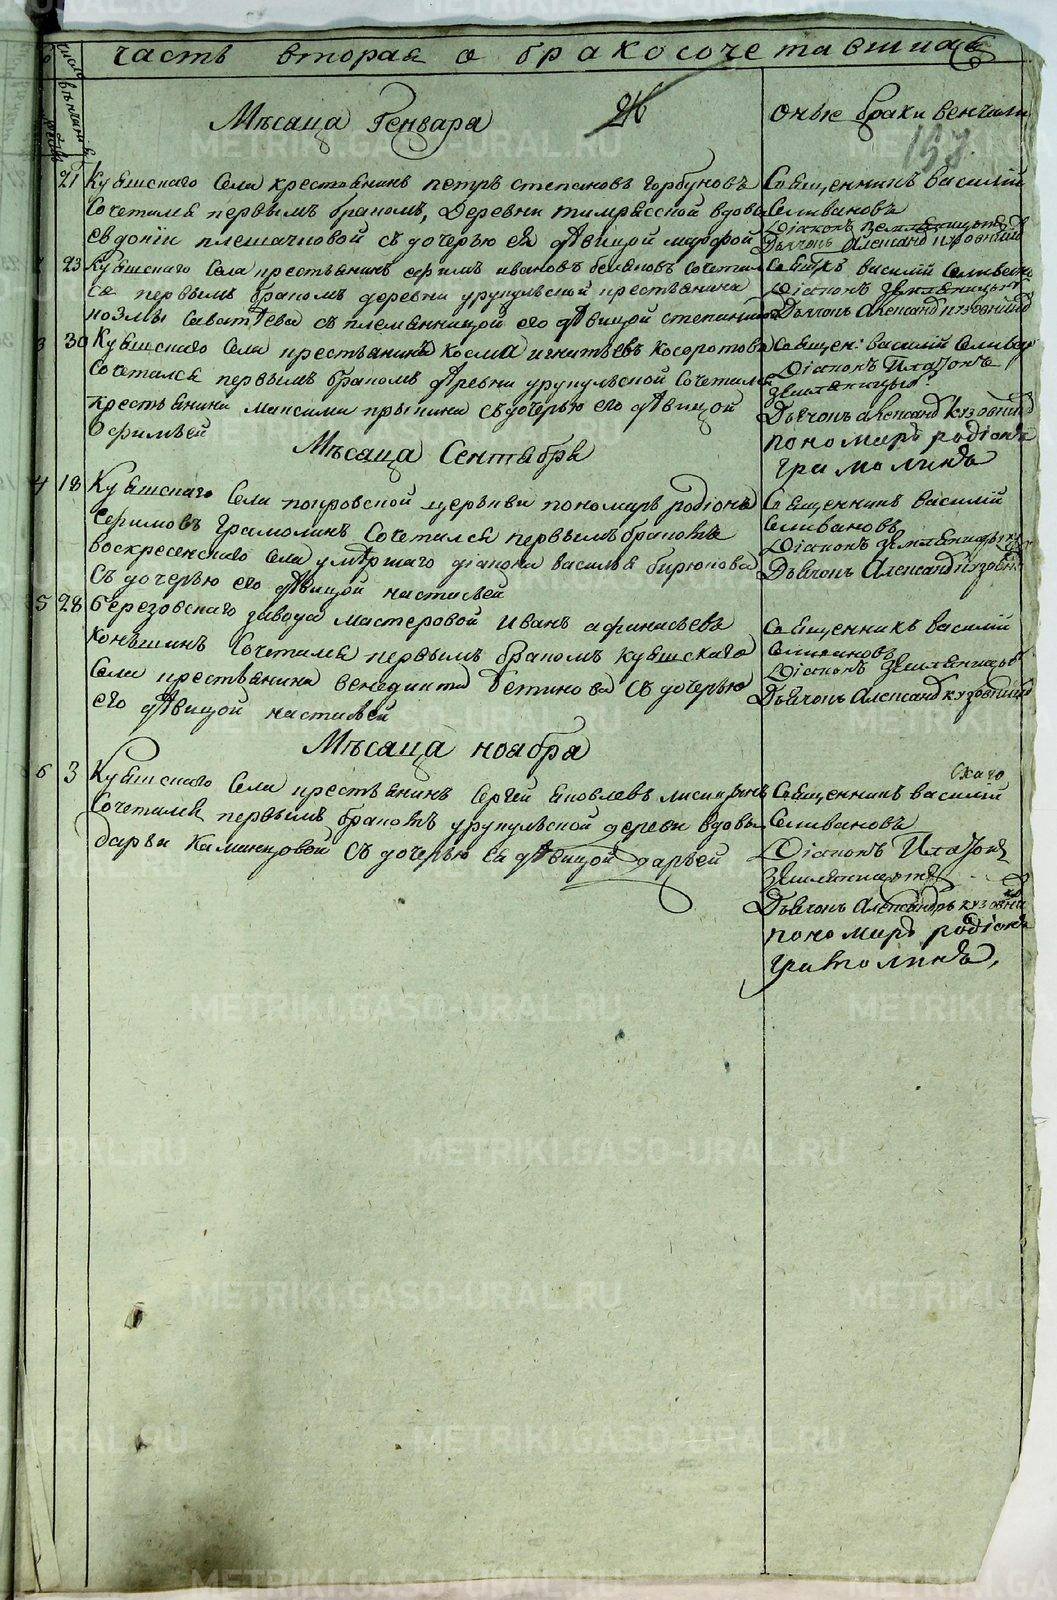 часть вторая о бракосочетавшихся
число венчания
Мѣсяца Генваря
26
оные браки венчали
137
21 Куяшскаго Села крестьянинъ петръ степановъ горбуновъ
сочетался первымъ бракомъ, деревни тимрясской вдовы
евдокіи плешачковой съ дочерью ея дѣвицой марфой
Священникъ василій
Селивановъ
Діаконъ земляницынъ
Дьячокъ Александ кузовниковъ
2 23 Куяшскаго Села крестьянинъ ефимъ ивановъ сочетал
ся первымъ бракомъ деревни урукульской крестьянина
козмы савати́ева съ племянницой его дѣвицой степанидой
Священ василій Селивановъ
Діаконъ земляницынъ
Дьячокъ Александ кузовников
3 30 Куяшскаго Села крестьянинъ косма игнатьевъ косоротовъ
Сочетался первымъ бракомъ деревни урукульской Сочетался
крестьянина максима съ дочерью его дѣвицой
Офимьей
Священ: василій Селиван
Діаконъ Платонъ
земляницынъ
Дьячокъ Александ кузовник
пономарь родіонъ
грамолинъ
Мѣсяца Сентября
4 18 Куяшскаго Села покровской церькви пономарь родіонъ
Ефимовъ Грамолинъ Сочетался первымъ бракомъ
воскресенскаго Села умершаго діакона василья бирюкова
Съ дочерью его дѣвицой настасьей
Священникъ василій
Селивановъ
Діаконъ земляницынъ
Дьячокъ Александ кузовн
5 28 березовскаго завода мастеровой иванъ афанасьевъ
коньшинъ Сочетался первымъ бракомъ Куяшскаго
Села крестьянина венедикта съ дочерью
его дѣвицой настасьей
Священникъ василій
Селивановъ
Діаконъ земляницынъ
Дьячокъ Александ кузовников
Мѣсяца ноября
6 3 Куяшскаго Села крестьянинъ Сергей яковлевъ лисицынъ
Сочетался первымъ бракомъ урукульской деревни вдовы
дарьи Каманцовой Съ дочерью ея дѣвицой дарьей
Священникъ василій
Селивановъ
Діаконъ Платонъ
земляницынъ
Дьячокъ Александръ кузовник
пономарь родіонъ
грамолинъ,
METRIKI.GASO-URAL.RU